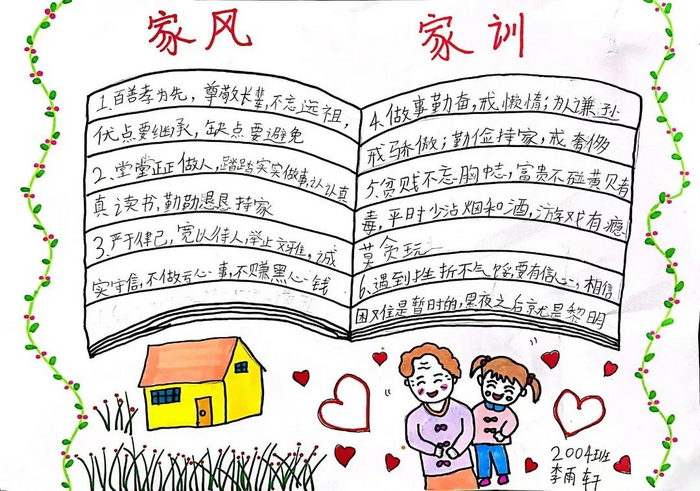 家风 家训
1.百善孝为先，尊敬长辈，不忘远祖，
优点要继承，缺点要避免
2.堂堂正正做人，踏踏实实做事，认认真
真读书，勤勤恳恳持家
3.严于律己，宽以待人，举止文雅，诚
实守信，不做亏心事，不赚黑心钱
4.做事勤奋，戒懒惰；为人谦逊
戒骄傲；勤俭持家，戒奢侈
5.贫贱不忘胸中志，富贵不碰黄贝者
毒，平时少沾烟和酒，游戏有瘾
莫贪玩
6.遇到挫折不气馁，要有信心，相信
困难是暂时的，黑夜之后就是黎明
2004班
李雨轩